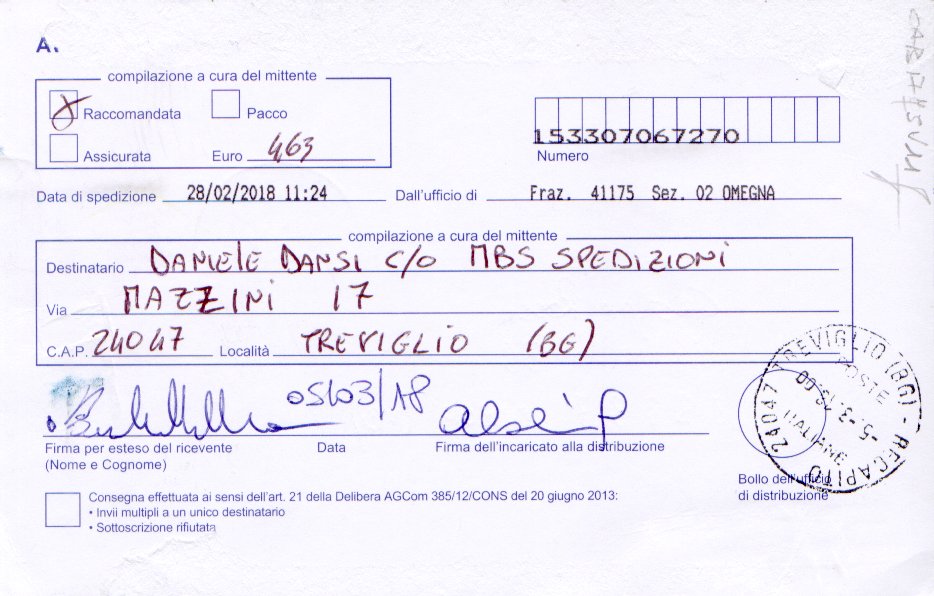 A.
compilazione a cura del mittente
Raccomandata Pacco
Assicurata Euro 463
153307067270
Numero
Data di spedizione 28/02/2018 11:24 Dall'ufficio di Fraz. 41175 Sez. 02 OMEGNA
compilazione a cura del mittente
Destinatario DANIELE DANSI C/O MBS SPEDIZIONI
Via MAZZINI 17
C.A.P. 24047 Località TREVIGLIO (BG)
05/03/18
Firma per esteso del ricevente Data Firma dell'incaricato alla distribuzione
(Nome e Cognome)
24047 TREVIGLIO (BG) - RECAPITO
POSTE
-5.-3.18.00
ITALIANE
Bollo dell'ufficio
di distribuzione
Consegna effettuata ai sensi dell'art. 21 della Delibera AGCom 385/12/CONS del 20 giugno 2013:
• Invii multipli a un unico destinatario
• Sottoscrizione rifiutata